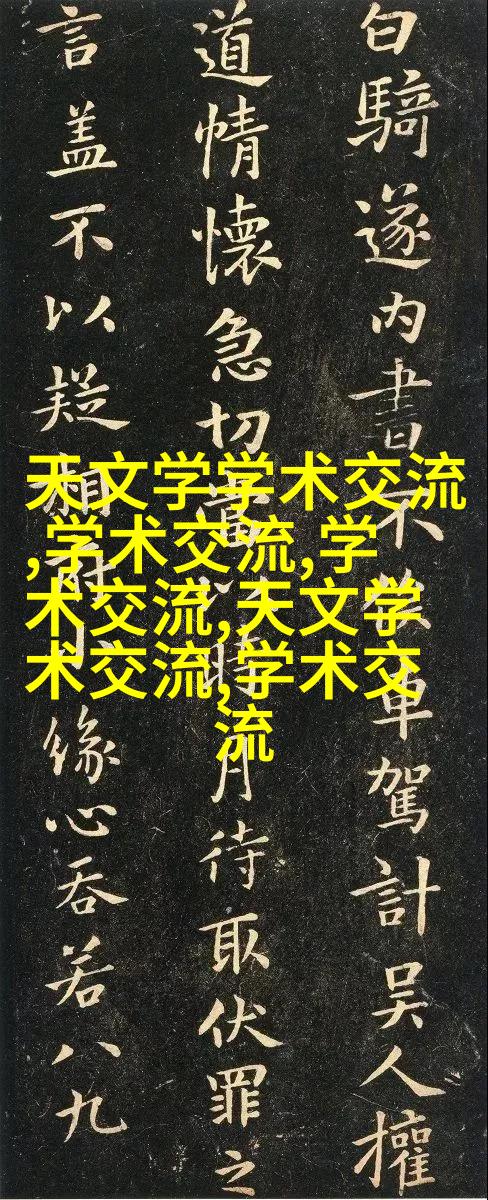 白騎遂内書不車駕計吴人權
道情懷急切當時月待取伏罪之
言盖不以疑緣心吞若八九
天文学学术交流
,学术交流,学
术交流,天文学
术交流,学术交
流